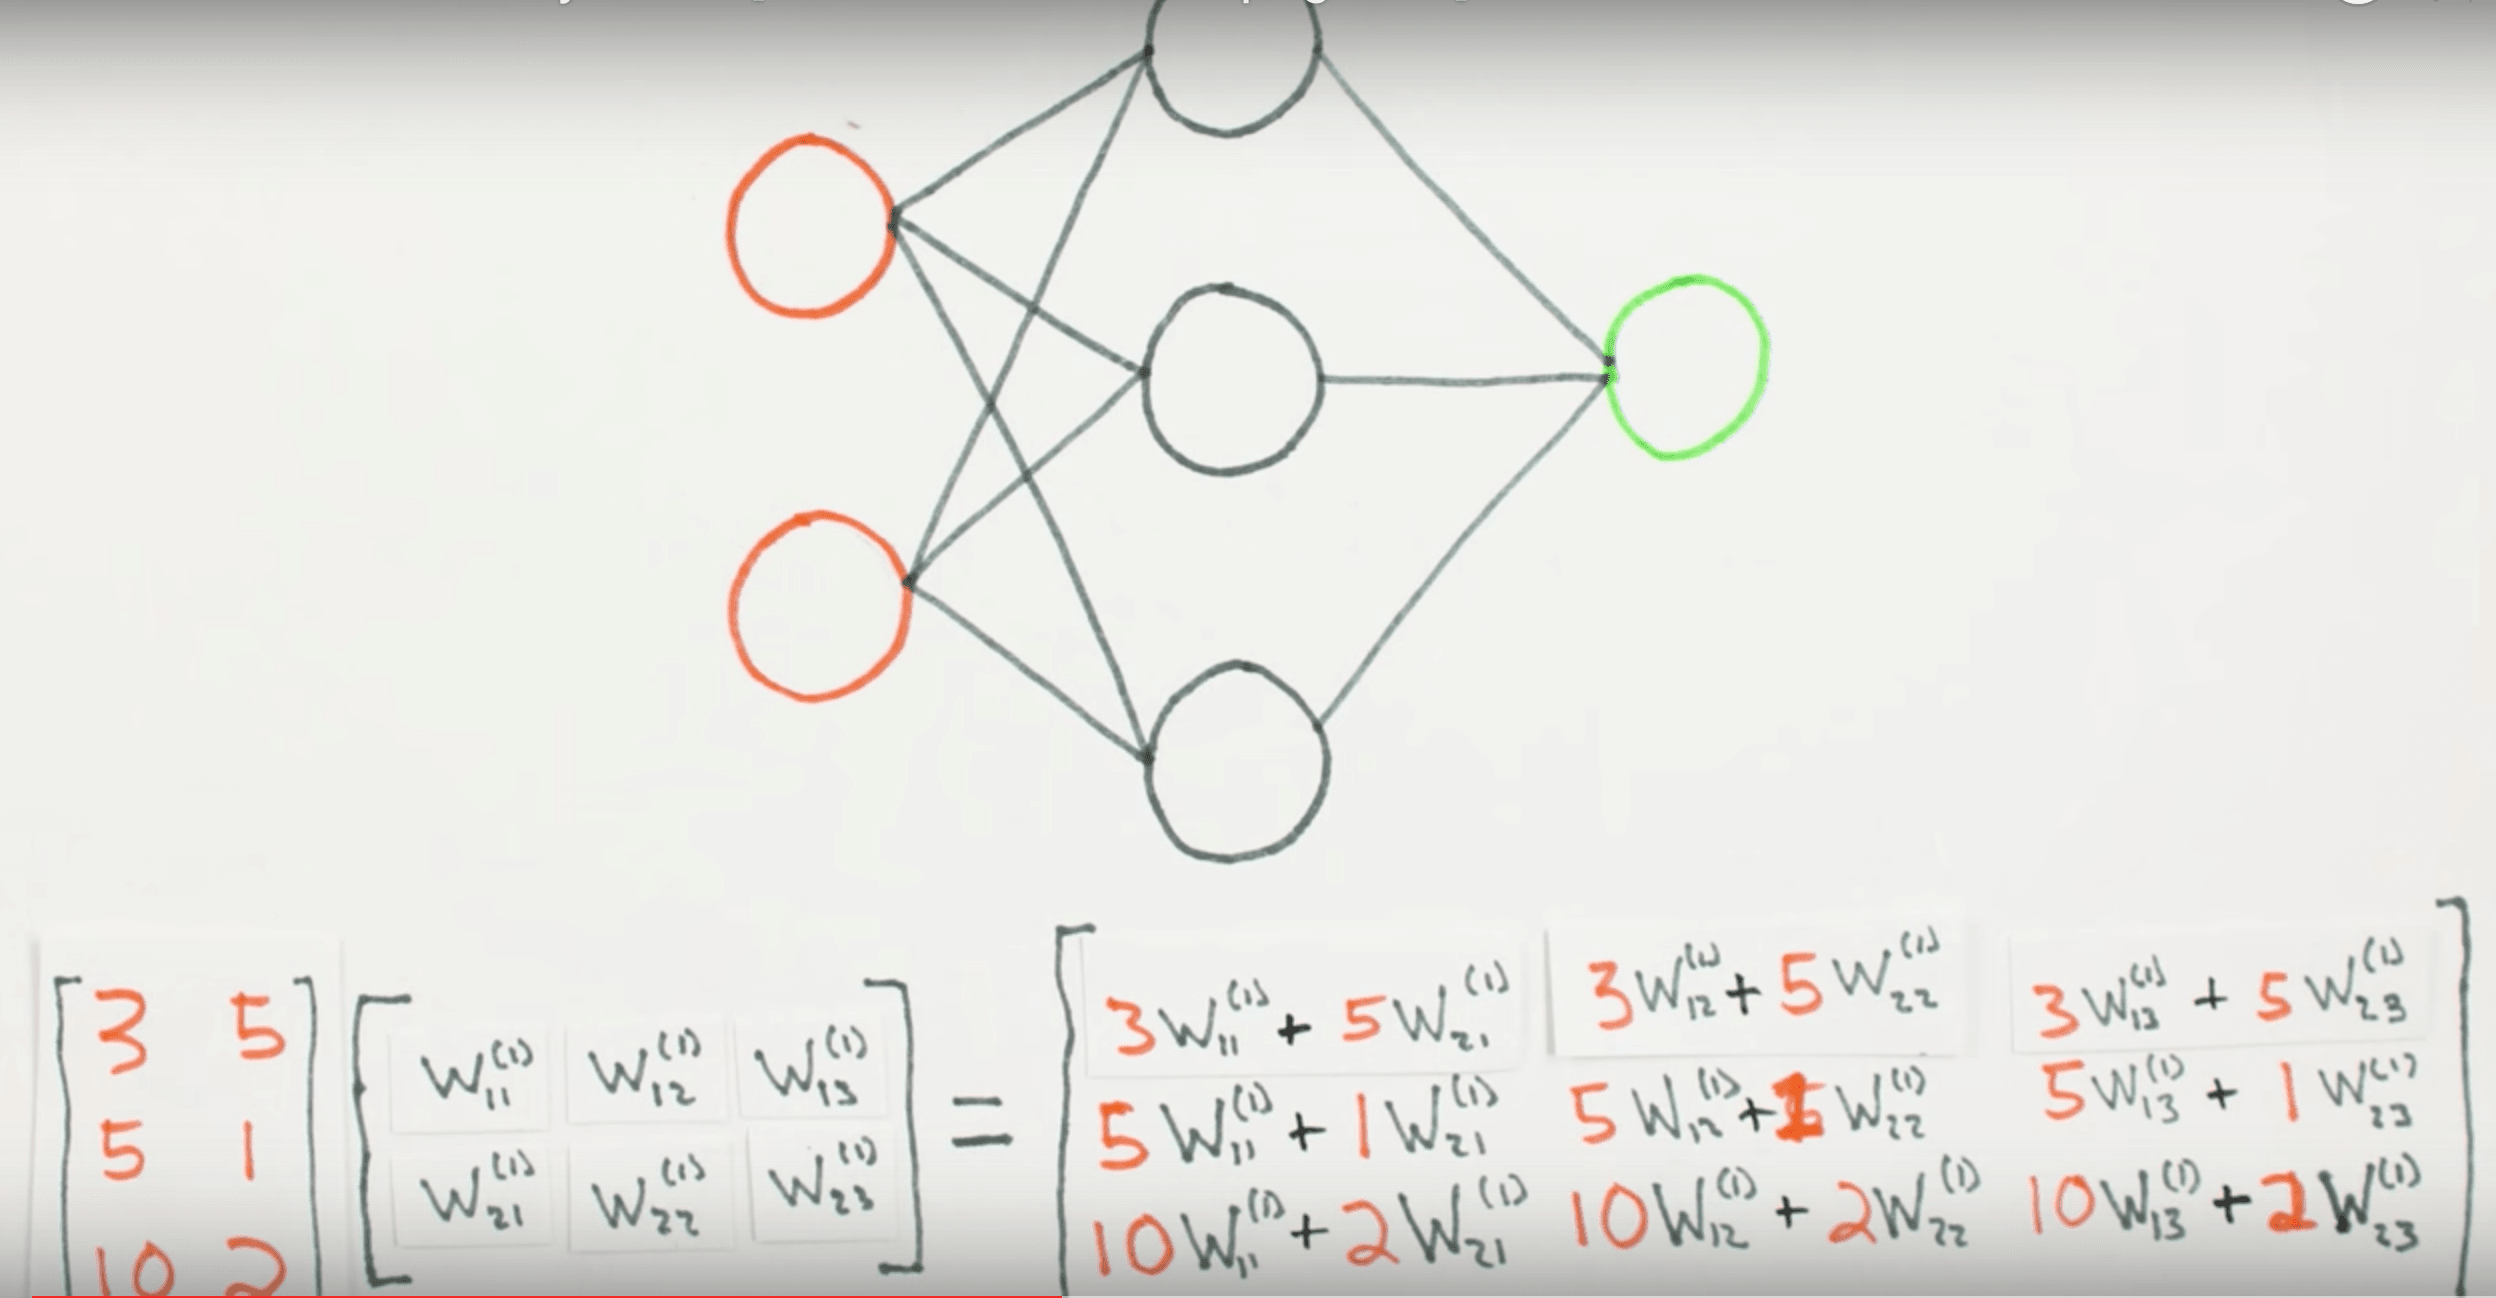 [3 5; 5 1; 10 2] [W₁₁⁽¹⁾ W₁₂⁽¹⁾ W₁₃⁽¹⁾; W₂₁⁽¹⁾ W₂₂⁽¹⁾ W₂₃⁽¹⁾] =
[3W₁₁⁽¹⁾ + 5W₂₁⁽¹⁾ 3W₁₂⁽¹⁾ + 5W₂₂⁽¹⁾ 3W₁₃⁽¹⁾ + 5W₂₃⁽¹⁾
5W₁₁⁽¹⁾ + 1W₂₁⁽¹⁾ 5W₁₂⁽¹⁾ + 1W₂₂⁽¹⁾ 5W₁₃⁽¹⁾ + 1W₂₃⁽¹⁾
10W₁₁⁽¹⁾ + 2W₂₁⁽¹⁾ 10W₁₂⁽¹⁾ + 2W₂₂⁽¹⁾ 10W₁₃⁽¹⁾ + 2W₂₃⁽¹⁾]